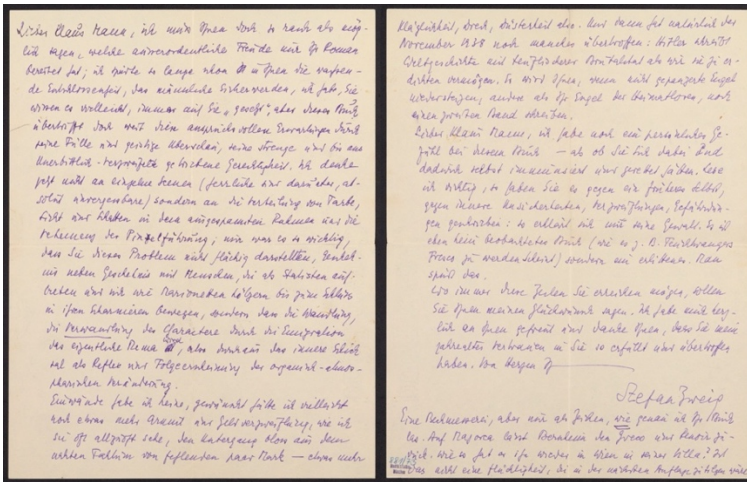 Lieber Klaus Mann, ich muss Ihnen doch so rasch als mög-
lich sagen, welche ausserordentliche Freude mir Ihr Roman
bereitet hat; ich spürte so lange schon in Ihnen die wachsen-
de Entschlossenheit, das männliche Sicherwerden, ich habe, Sie
wissen es vielleicht, immer auf Sie „gesetzt", aber dieses Buch
übertrifft doch weit diese anspruchsvollen Erwartungen durch
seine Fülle und geistige Überschau, seine strenge und bis zum
Unerbittlich-Verzweifelte getriebene Gerechtigkeit. Ich denke
jetzt nicht an einzelne Scenen (herrliche und darunter, ab-
solut unvergessbare) sondern an die Verteilung von Farbe,
Licht und Schatten in dem ausgespannten Rahmen und die
der Pinselführung; mir war es so wichtig,
dass Sie dieses Problem nicht flächig darstellten,
neben Geschehnis mit Menschen, die als Statisten auf-
treten und wie Marionetten bis zum Schluss
in ihren Scharnieren bewegen, sondern dass die Wandlung,
die Verwandlung der Charaktere durch die Emigration
das eigentliche Thema wird, also durchaus das innere Schick
sal als Reflex und Folgeerscheinung der organisch-atmos-
phärischen Veränderung.
Einwände habe ich keine, gewünscht hätte ich vielleicht
noch etwas mehr Armut und Geldverzweiflung, wie ich
sie oft allzuoft sehe, den Untergang bloss aus dem
nackten Faktum von fehlenden paar Mark – etwas mehr
Kläglichkeit, Dreck, Düsterkeit also. Und dann hat natürlich der
November 1938 noch manches übertroffen: Hitler
Weltgeschichte mit teuflischerer Brutalität als wir sie zu er-
dichten vermögen. So wird Ihnen, wenn nicht gepanzerte Engel
niedersteigen, andere als Ihr Engel der Heimatlosen, noch
einen zweiten Band schreiben.
Lieber Klaus Mann, ich habe noch ein persönliches Ge-
fühl bei diesem Buch – als ob Sie sich dabei und
dadurch selbst immunisiert und gerettet hätten. Lese
ich richtig, so haben Sie es gegen ein früheres Selbst,
gegen innere Unsicherheiten, Verzweiflungen, Gefährdun-
gen geschrieben: so erklärt sich mir seine Gewalt. Es ist
eben kein beobachtetes Buch (wie es z. B. Feuchtwangers
zu werden scheint) sondern ein erlittenes. Man
spürt das.
Wo immer diese Zeilen Sie erreichen mögen, sollen
Sie Ihnen meinen Glückwunsch sagen. Ich habe mich herz-
lich an Ihnen gefreut und danke Ihnen, dass Sie mein
jahrealtes Vertrauen in Sie so erfüllt und übertroffen
haben. Von Herzen Ihr
Stefan Zweig
Eine, aber nur als Zeichen, wie genau ich Ihr Buch
las. Auf Majorca lässt Bernheim den Greco zu-
rück. Wie hat er ihn wieder in Wien in seiner Villa? Ist
das nicht eine Flüchtigkeit, die in der nächsten Auflage zu tilgen wäre